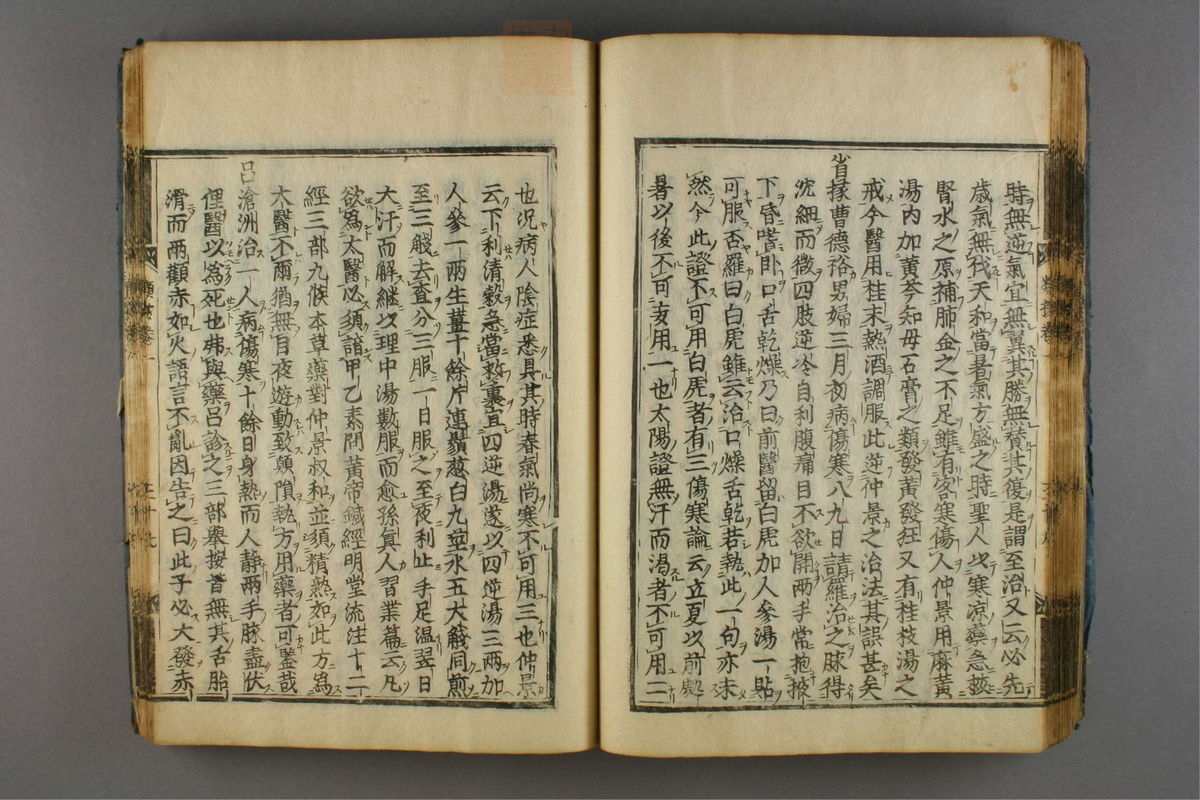 時無逆氣宜無翼其勝無賛其復是謂至治又云必先
歳氣無伐天和當暑氣方盛之時聖人以寒涼藥急救
腎水之原補肺金之不足雖有客寒傷人仲景用麻黄
湯内加黄芩知母石膏之類發黄發狂又有桂枝湯之
戒今醫用桂末熱酒調服此逆仲景之治法其誤甚矣
省掾曹德裕男婦三月初病傷寒八九日請羅治之脉得
沈細而微四肢逆冷自利腹痛目不欲開兩手常抱掖
下昏嗜卧口舌乾燥乃曰前醫留白虎加人參湯一貼
可服否羅曰白虎雖云治口燥舌乾若執此一句亦未
然今此證不可用白虎者有三傷寒論云立夏以前處
暑以後不可妄用一也太陽證無汗而渇者不可用二
也況病人陰症悉具其時春氣尚寒不可用三也仲景
云下利清穀急當救裏宜四逆湯遂以四逆湯三兩加
人參一兩生薑十餘片連鬚葱白九莖水五大餞同煎
至三餞去査分三服一日服之至夜利止手足温翌日
大汗而解繼以理中湯數服而愈孫真人習業篇云凡
欲爲太醫必須諳甲乙素問黄帝鍼經明堂流注十二
經三部九候本草藥對仲景叔和並須精熟如此方爲
大醫不爾猶無目夜遊動致顛隕執方用藥者可鑒哉
呂滄洲治一人病傷寒十餘日身熱而人静兩手脉盡伏
俚醫以爲死也弗與藥呂診之三部舉按皆無其舌胎
滑而兩顴赤如火語言不亂因告之曰此子必大發赤